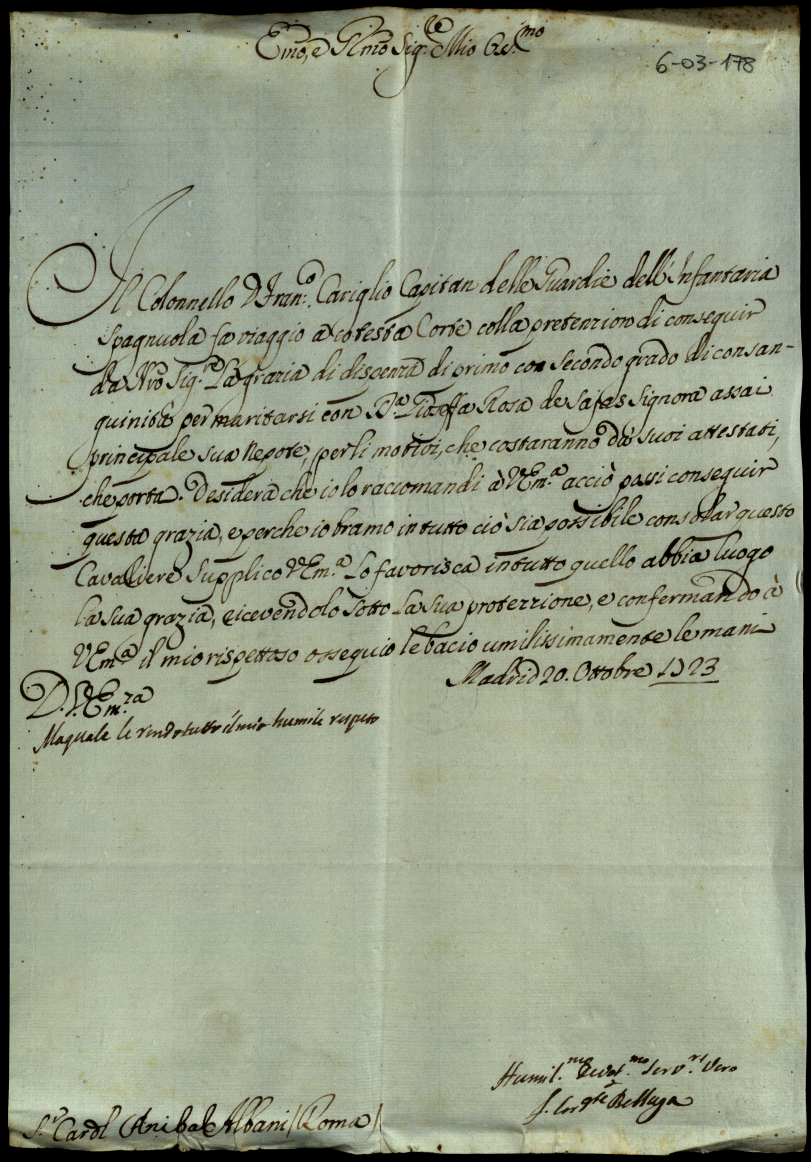 Emo, e Rmo Sig.re Mio Oss.mo
6-03-178
Il Colonnello D. Fran.co Cariglio Capitan delle Guardie dell'Infantaria
Spagnuola fa viaggio a cotesta Corte colla pretenzion di conseguir
da Nro Sig.re La grazia di dispenza di primo con Secondo grado di consan-
quinità per maritarsi con D.a Gioseffa Rosa de Sajas Signora assai
principale sua Nepote, per li motivi, che costaranno da suoi attestati,
che porta. Desidera che io lo raccomandi à VEm.a acciò possi conseguir
questa grazia, e perche io bramo in tutto ciò sia possibile consolar questo
Cavaliere Supplico VEm.a Lo favorisca in tutto quello abbia luogo
la sua grazia, ricevendolo sotto La sua protezzione, e confermando à
VEm.a il mio rispettoso ossequio le bacio umilissimamente le mani
Madrid 20. Ottobre 1723
D. V. Em.za
Alla quale le rendo tutto il mio humile respeto
Humil.mo Devot.mo Serv.re Vero
L. Car.le Belluga
S.r Card.l Anibal Albani / Roma /